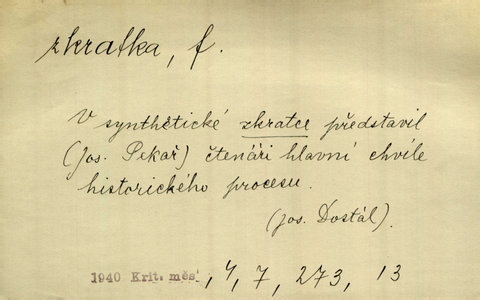 zkratka, f.
V synthetické zkratce představil
(Jos. Pekař) čtenáři hlavní chvíle
historického procesu.
(Jos. Dostál).
1940 Krit. měs., 4, 7, 273, 13